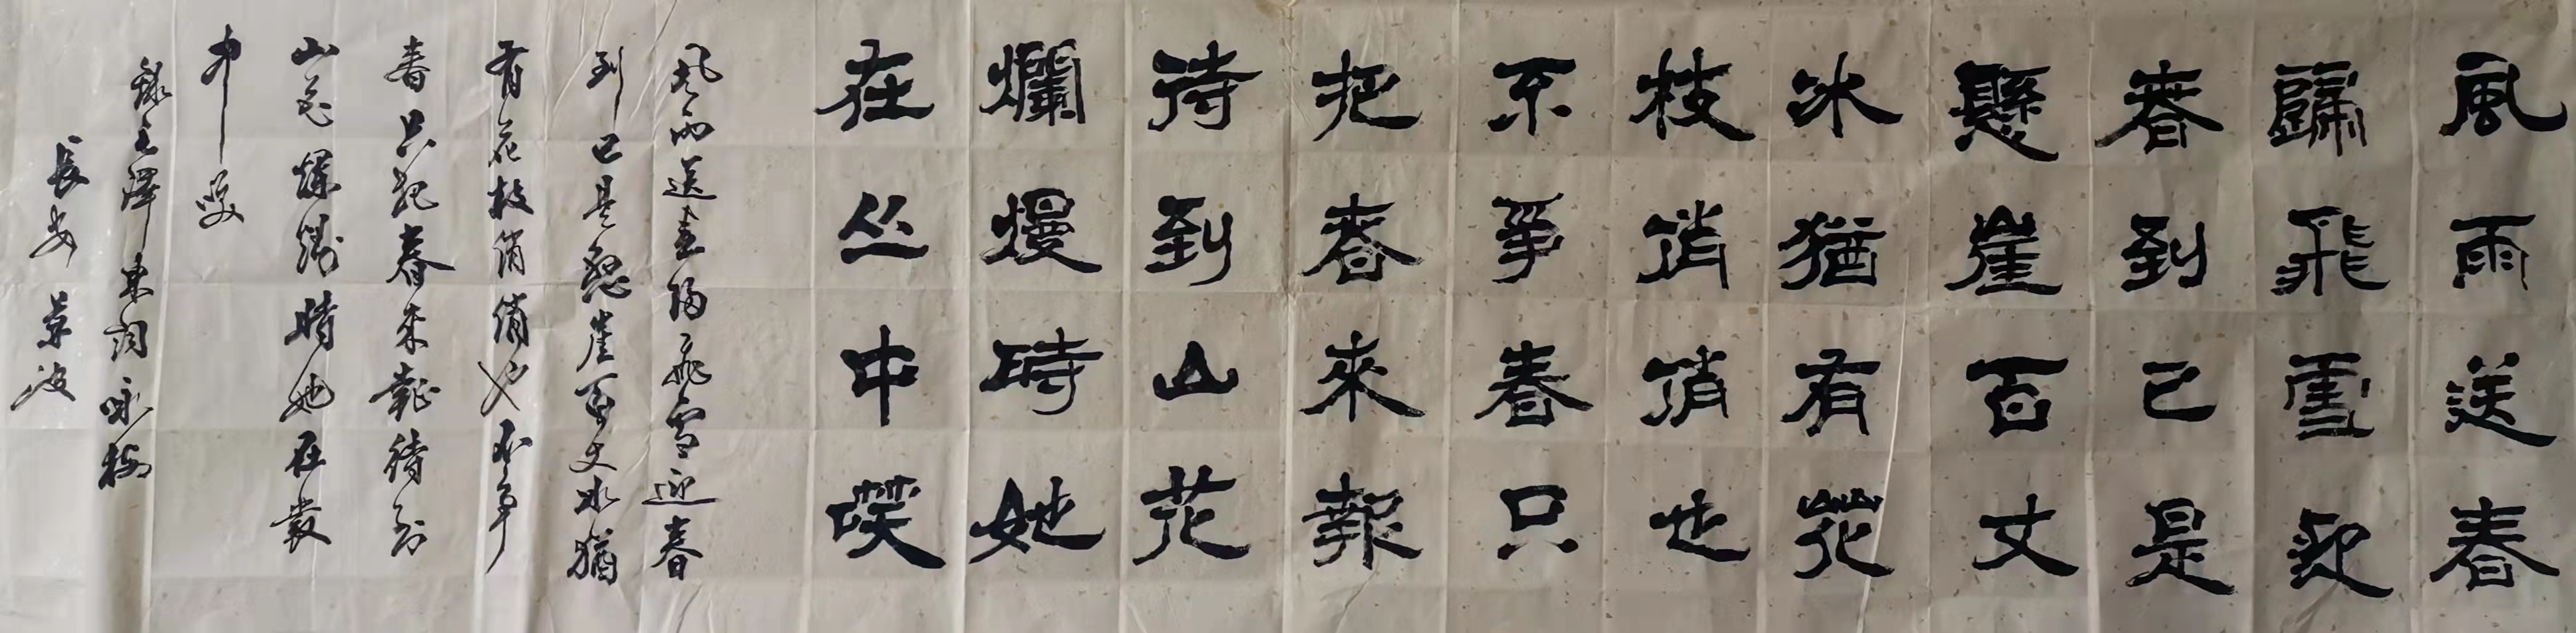 風雨送春
歸飛雪迎
春到已是
懸崖百丈
冰猶有花
枝俏俏也
不爭春只
把春來報
待到山花
爛熳時她
在丛中唉
风雨送春归飛雪迎春
到已是懸崖百丈冰猶
有花枝俏俏也不争
春只把春来報待到
山花爛漫時她在叢
中笑
錄毛澤東词咏梅
長安 草波